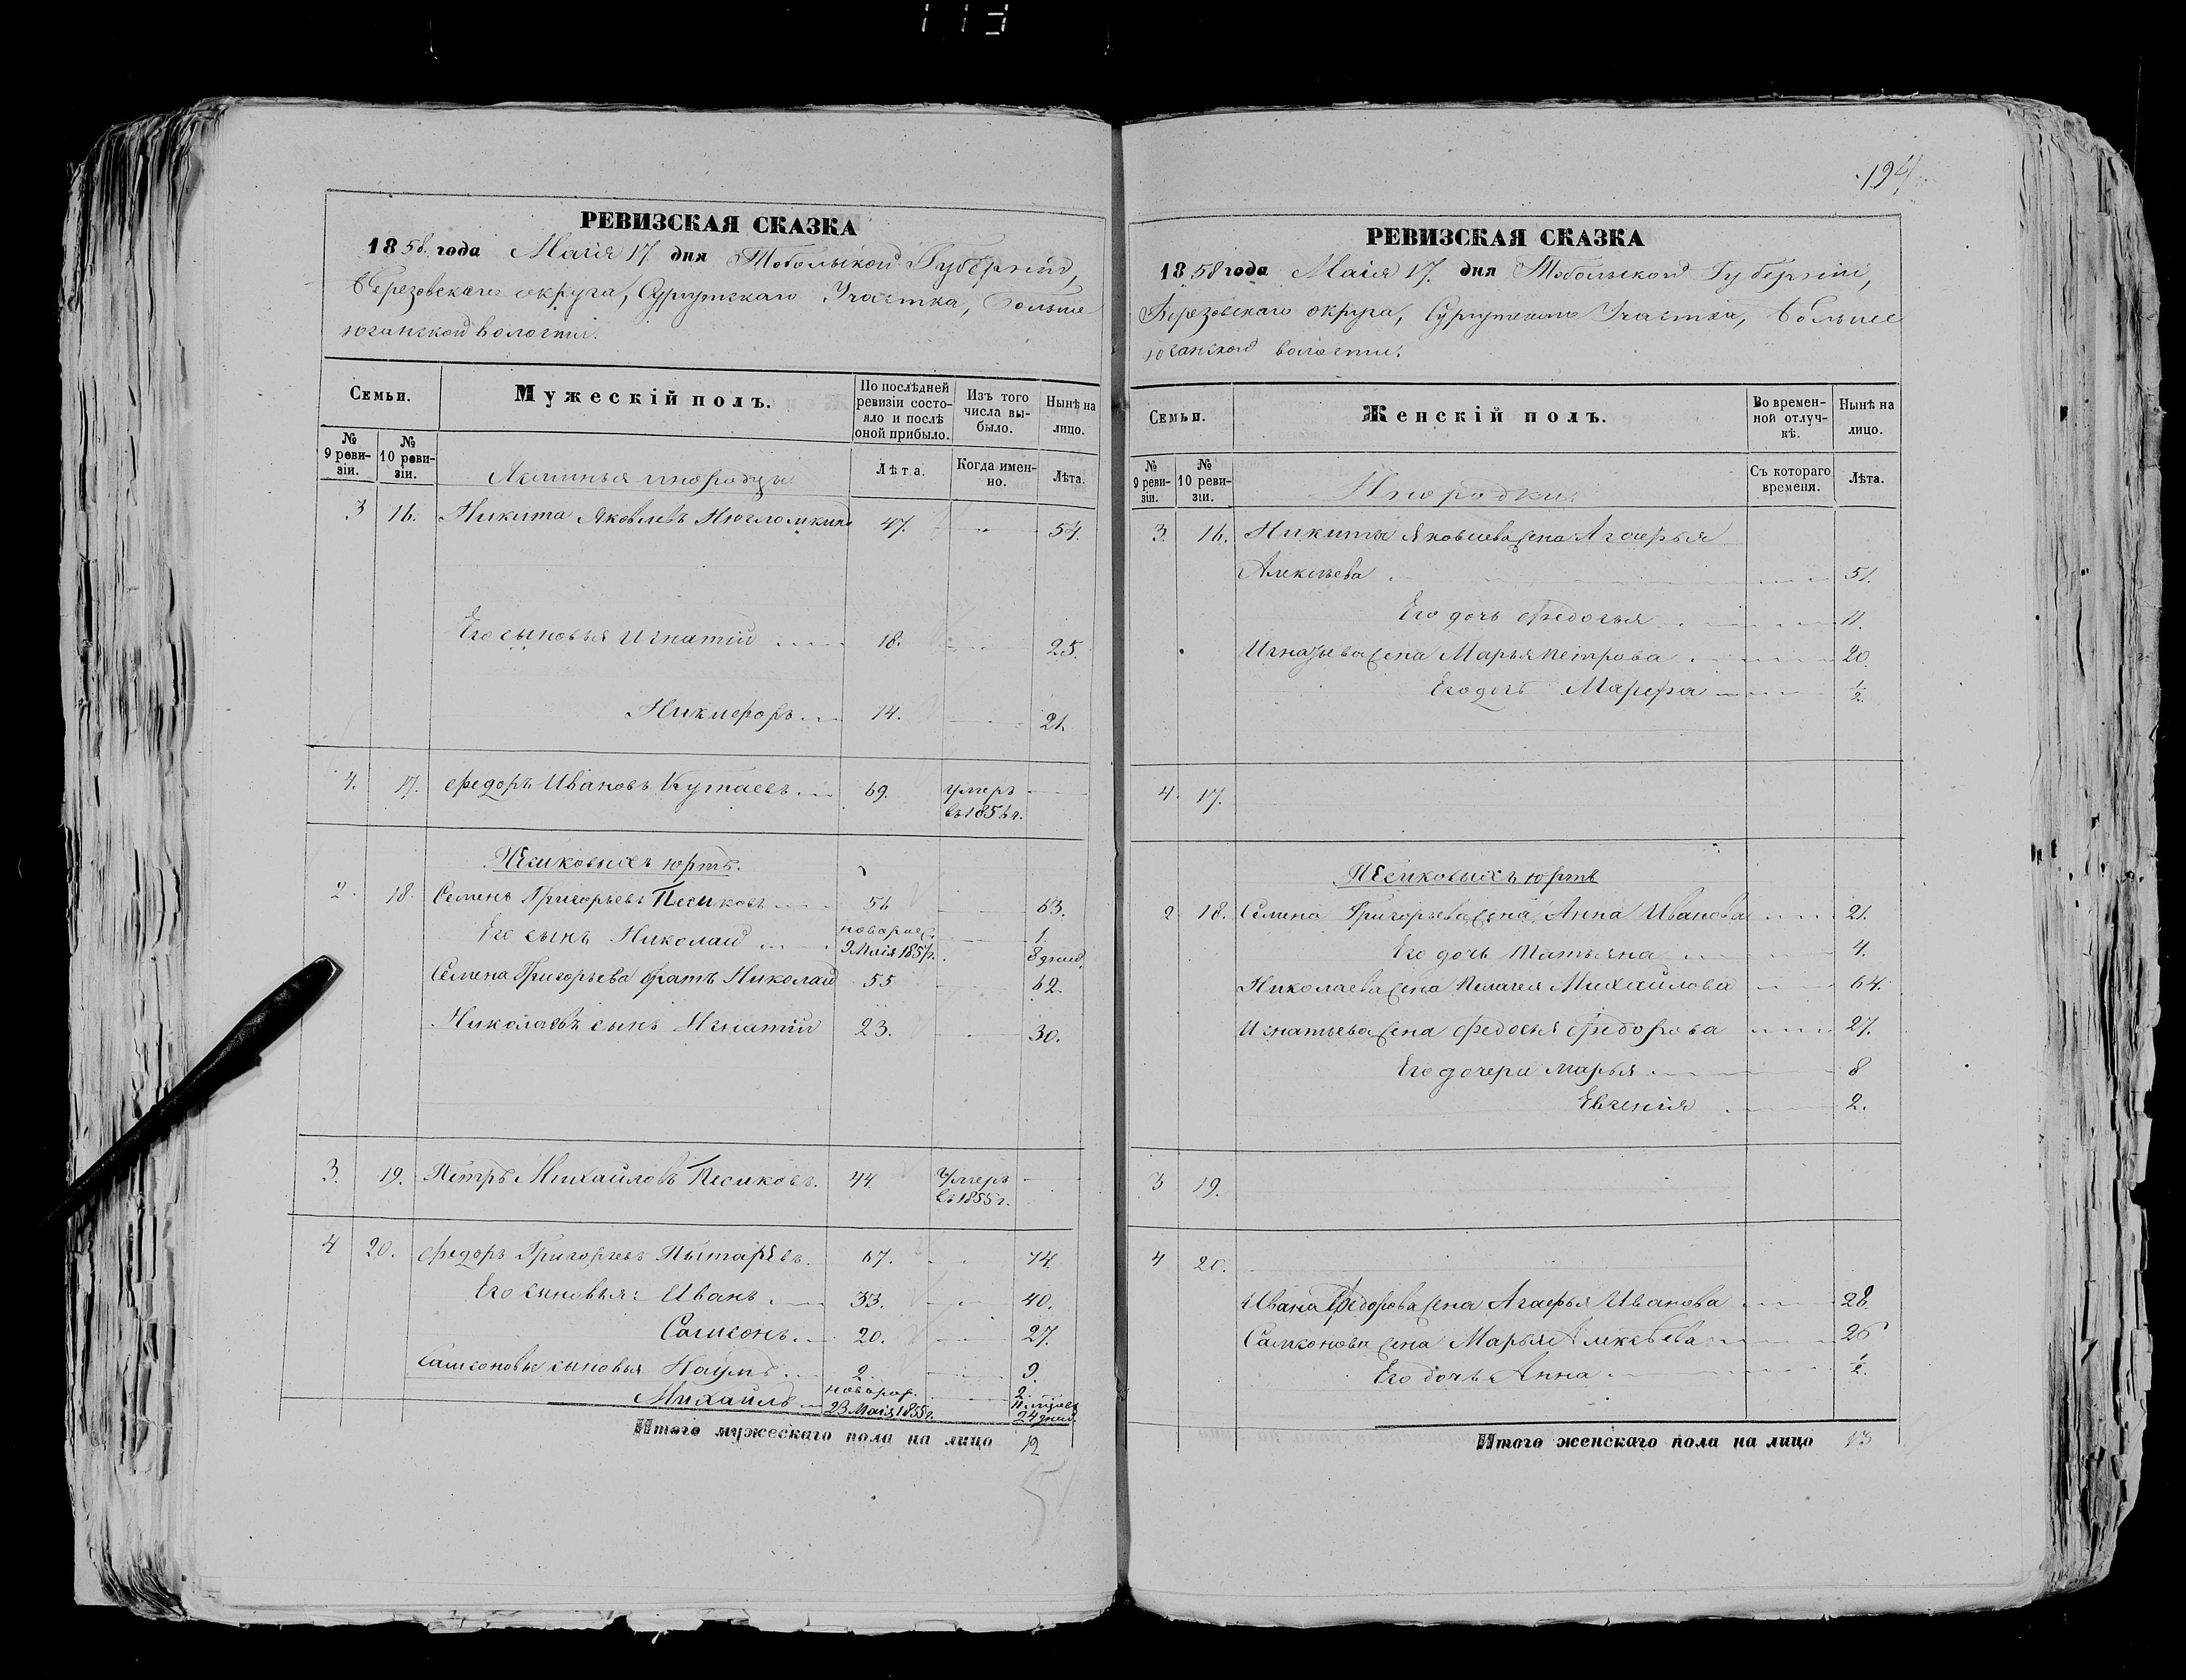 113
РЕВИЗСКАЯ СКАЗКА
1858 года Маія 17 дня Тобольской Губерніи,
Березовскаго округа, Сургутскаго Участка, Больше
юганской волости.
Семьи.
Мужескій полъ.
По послѣдней ревизіи состояло и послѣ оной прибыло.
Изъ того числа выбыло.
Нынѣ на лицо.
№ 9 ревизіи.
№ 10 ревизіи.
инородцы
Лѣта.
Когда именно.
Лѣта.
3 16. Никита Яковлевъ 47. 54.
Его сыновья Игнатій 18. 25.
Никифоръ 14. 21.
4. 17. Федоръ Ивановъ Кутаевъ 69. умеръ въ 1856 г.
Песиковыхъ юртъ.
2. 18. Семенъ Григорьевъ Песиковъ 56 63.
Его сынъ Николай новорож. 9 Маія 1857 г. 1. 8 дней.
Семена Григорьева братъ Николай 55 62.
Николаевъ сынъ Игнатій 23. 30.
3. 19. Петръ Михайловъ Песиковъ. 44. Умеръ въ 1855 г.
4 20. Федоръ Григорьевъ Пытаревъ. 67. 74.
Его сыновья: Иванъ 33. 40.
Самсонъ 20. 27.
Самсоновы сыновья Наумъ 2. 9.
Михайлъ новорож. 23 Маія 1855 г. 2. 11 мѣсяцъ 24 дней
Итого мужескаго пола на лицо 12
194
РЕВИЗСКАЯ СКАЗКА
1858 года Маія 17. дня Тобольской Губерніи,
Березовскаго округа, Сургутскаго Участка, Больше
юганской волости.
Семьи.
Женскій полъ.
Во временной отлучкѣ.
Нынѣ на лицо.
№ 9 ревизіи.
№ 10 ревизіи.
Инородки
Съ котораго времени.
Лѣта.
3. 16. Никиты Яковлева жена Агафья
Алексѣева 51.
Его дочь Федосья 11.
жена Марья Петрова 20.
Его дочь Марфа ½.
4. 17.
Песиковыхъ юртъ
2 18. Семена Григорьева жена Анна Иванова 21.
Его дочь Татьяна 4.
Николаева жена Пелагея Михайлова 64.
Игнатьева жена Федосья Федорова 27.
Его дочери Марья 8
Евгенія 2.
3 19.
4 20.
Ивана Федорова жена Агафья Иванова 28.
Самсонова жена Марья Алексѣева 26
Его дочь Анна ½.
Итого женскаго пола на лицо 13